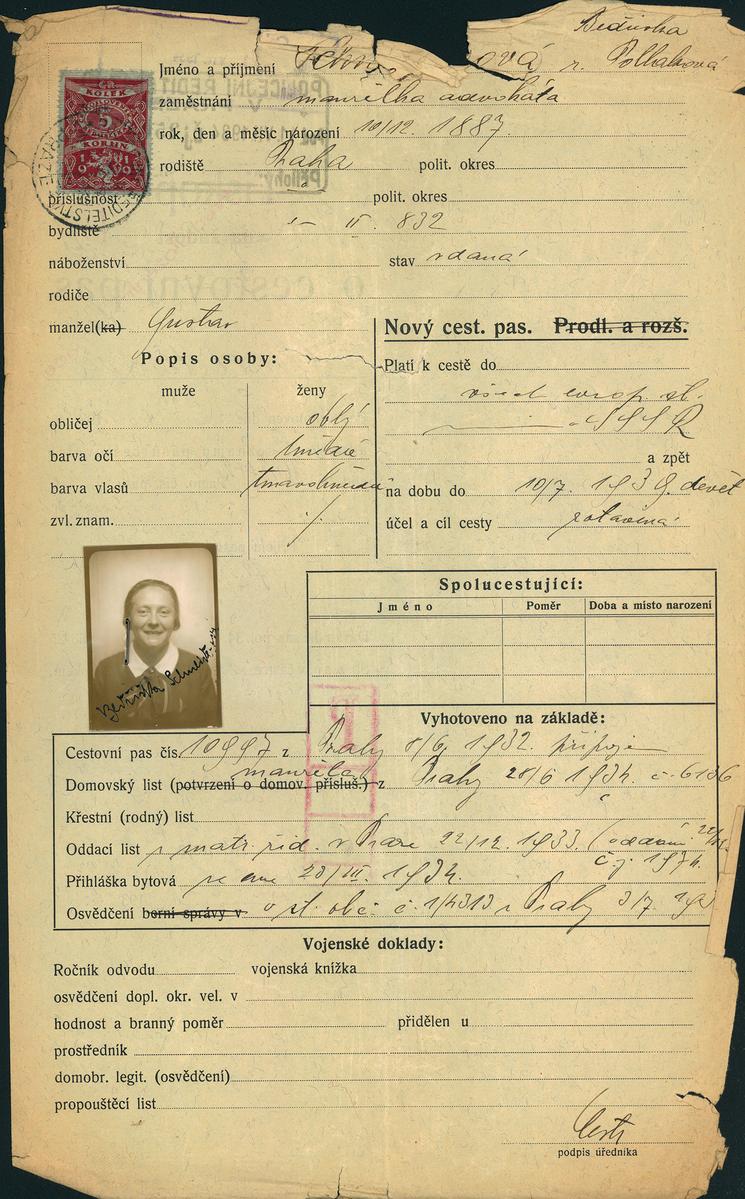 Bedřiška
Jméno a příjmení ová r. Pollaková
zaměstnání manželka advokáta
rok, den a měsíc národení 10/12. 1887.
rodiště Praha polit. okres
příslušnost polit. okres
bydliště II. 832
náboženství stav vdaná
rodiče
manžel(ka) Gustav
Nový cest. pas. Prodl. a rozš.
Popis osoby:
muže ženy
obličej oblý
barva očí hnědé
barva vlasů tmavohnědé
zvl. znam. ./.
Platí k cestě do
všech evrop. st.
SSSR
a zpět
na dobu do 10/7. 1939. devět
účel a cíl cesty zotavená
KOLEK
5
KORUN
1919
Spolucestující:
Jméno Poměr Doba a místo narození
Vyhotoveno na základě:
Cestovní pas čís. 10997 z Prahy 8/6 1932. připoje
manžela
Domovský list (potvrzení o domov. přísluš.) z Prahy 28/6 1934. č. 6136
Křestní (rodný) list
Oddací list z matr. žid. v Praze 22/12. 1933. (oddáni
č.j. 1974.
Přihláška bytová ze dne 20/III. 1934.
Osvědčení borní správy v o st. obč. č. 14313 z Prahy 3/7. 193
Vojenské doklady:
Ročník odvodu vojenská knížka
osvědčení dopl. okr. vel. v
hodnost a branný poměr přidělen u
prostředník
domobr. legit. (osvědčení)
propouštěcí list
podpis úředníka